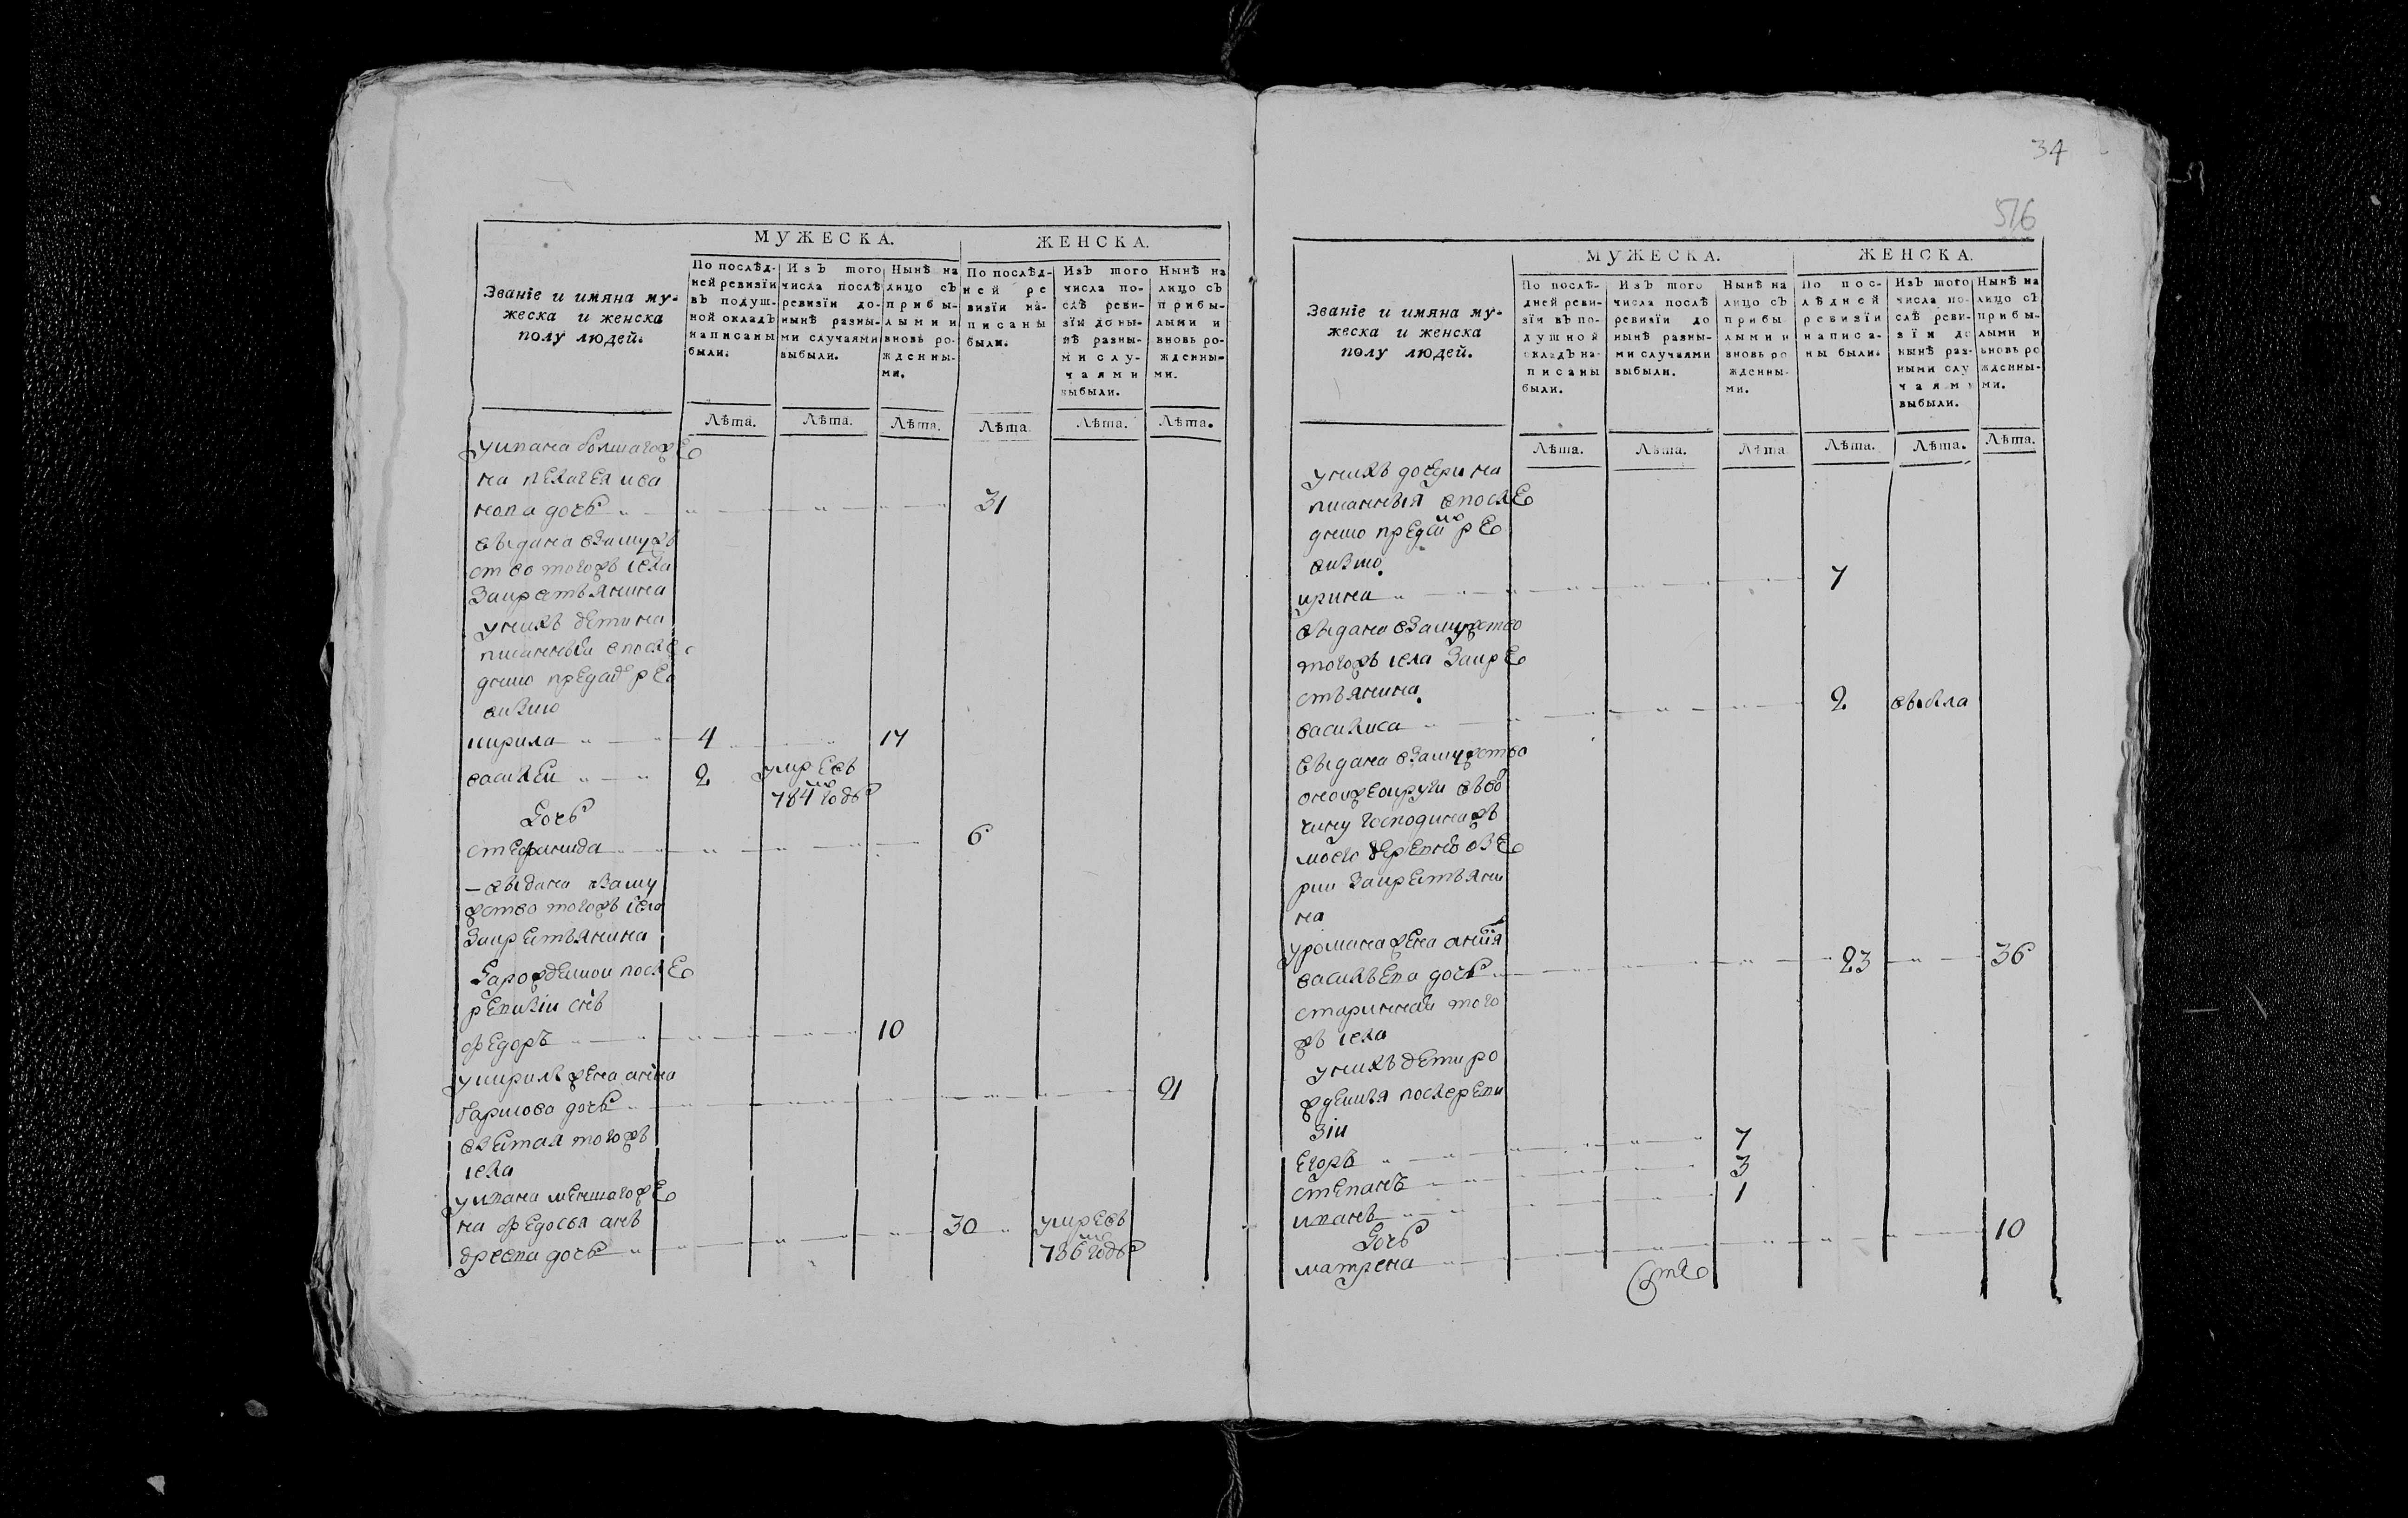 МУЖЕСКА. ЖЕНСКА.
Званіе и имяна му-
жеска и женска
полу людей.
По послѣд-
ней ревизіи
въ подуш-
ной окладъ
написаны
были.
Изъ того
числа послѣ
ревизіи до-
нынѣ разны-
ми случаями
выбыли.
Нынѣ на
лицо съ
прибы-
лыми и
вновь ро-
жденны-
ми.
По послѣд-
ней ре
визіи на-
писаны
были.
Изъ того
числа по-
слѣ реви-
зіи до ны-
нѣ разны-
ми слу-
чаями
выбыли.
Нынѣ на
лицо съ
прибы-
лыми и
вновь ро-
жденны-
ми.
Лѣта. Лѣта. Лѣта. Лѣта. Лѣта. Лѣта.
у ивана болшаго же
на пелагея ива
нова дочь 31
выдана взамуж
ство тогожъ села
за крстьянина
у нихъ дети на
писанныи в после
днюю пред
визию
кирила 4 17
василеи 2 умре въ
784м годѣ
дочь
стефанида 6
— выдана взаму
жство тогожъ села
за крестьянина
рожденнои после
ревизіи снъ
федоръ 10
у кирилы жена анна
дочь 21
взятая тогожъ
села
у ивана меншаго же
на федосья анъ
дреева дочь 30 умре въ
786м годѣ
34
516
МУЖЕСКА. ЖЕНСКА.
Званіе и имяна му-
жеска и женска
полу людей.
По послѣ-
дней реви-
зіи въ по-
душной
окладъ на-
писаны
были.
Изъ того
числа послѣ
ревизіи до
нынѣ разны-
ми случаями
выбыли.
Нынѣ на
лицо съ
прибы
лыми и
вновь ро
жденны-
ми.
По пос-
лѣдней
ревизіи
написа-
ны были.
Изъ того
числа по-
слѣ реви-
зіи до
нынѣ раз-
ными слу
чаями
выбыли.
Нынѣ на
лицо съ
прибы-
лыми и
вновь ро
жденны-
ми.
Лѣта. Лѣта. Лѣта. Лѣта. Лѣта. Лѣта.
у нихъ дочери на
писанныя в после
днюю пред ре
визию
ирина 7
выдана взамужство
тогожъ села за кре
стьянина
василиса 2 выбыла
выдана взамужство
округи въ во
чину господина жъ
моего деревню
за крестьяни
на
у романа жена
васильева дочь 23 36
стариннаи того
жъ села
у нихъ дети ро
жденыя после реви
зіи
егоръ 7
степанъ 3
иванъ 1
дочь
матрена 10